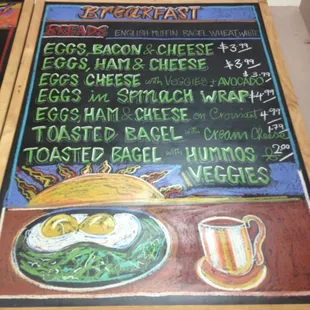 BREAKFAST
BREADS ENGLISH MUFFIN BAGEL WHEAT WHITE
EGGS, BACON & CHEESE $3.99
EGGS, HAM & CHEESE $3.99
EGGS CHEESE with VEGGIES + AVOCADO $3.99
EGGS in SPINACH WRAP $4.99
EGGS, HAM & CHEESE on Croissant 4.99
TOASTED BAGEL with Cream Cheese 1.74
TOASTED BAGEL with HUMMOS 2.00
VEGGIES